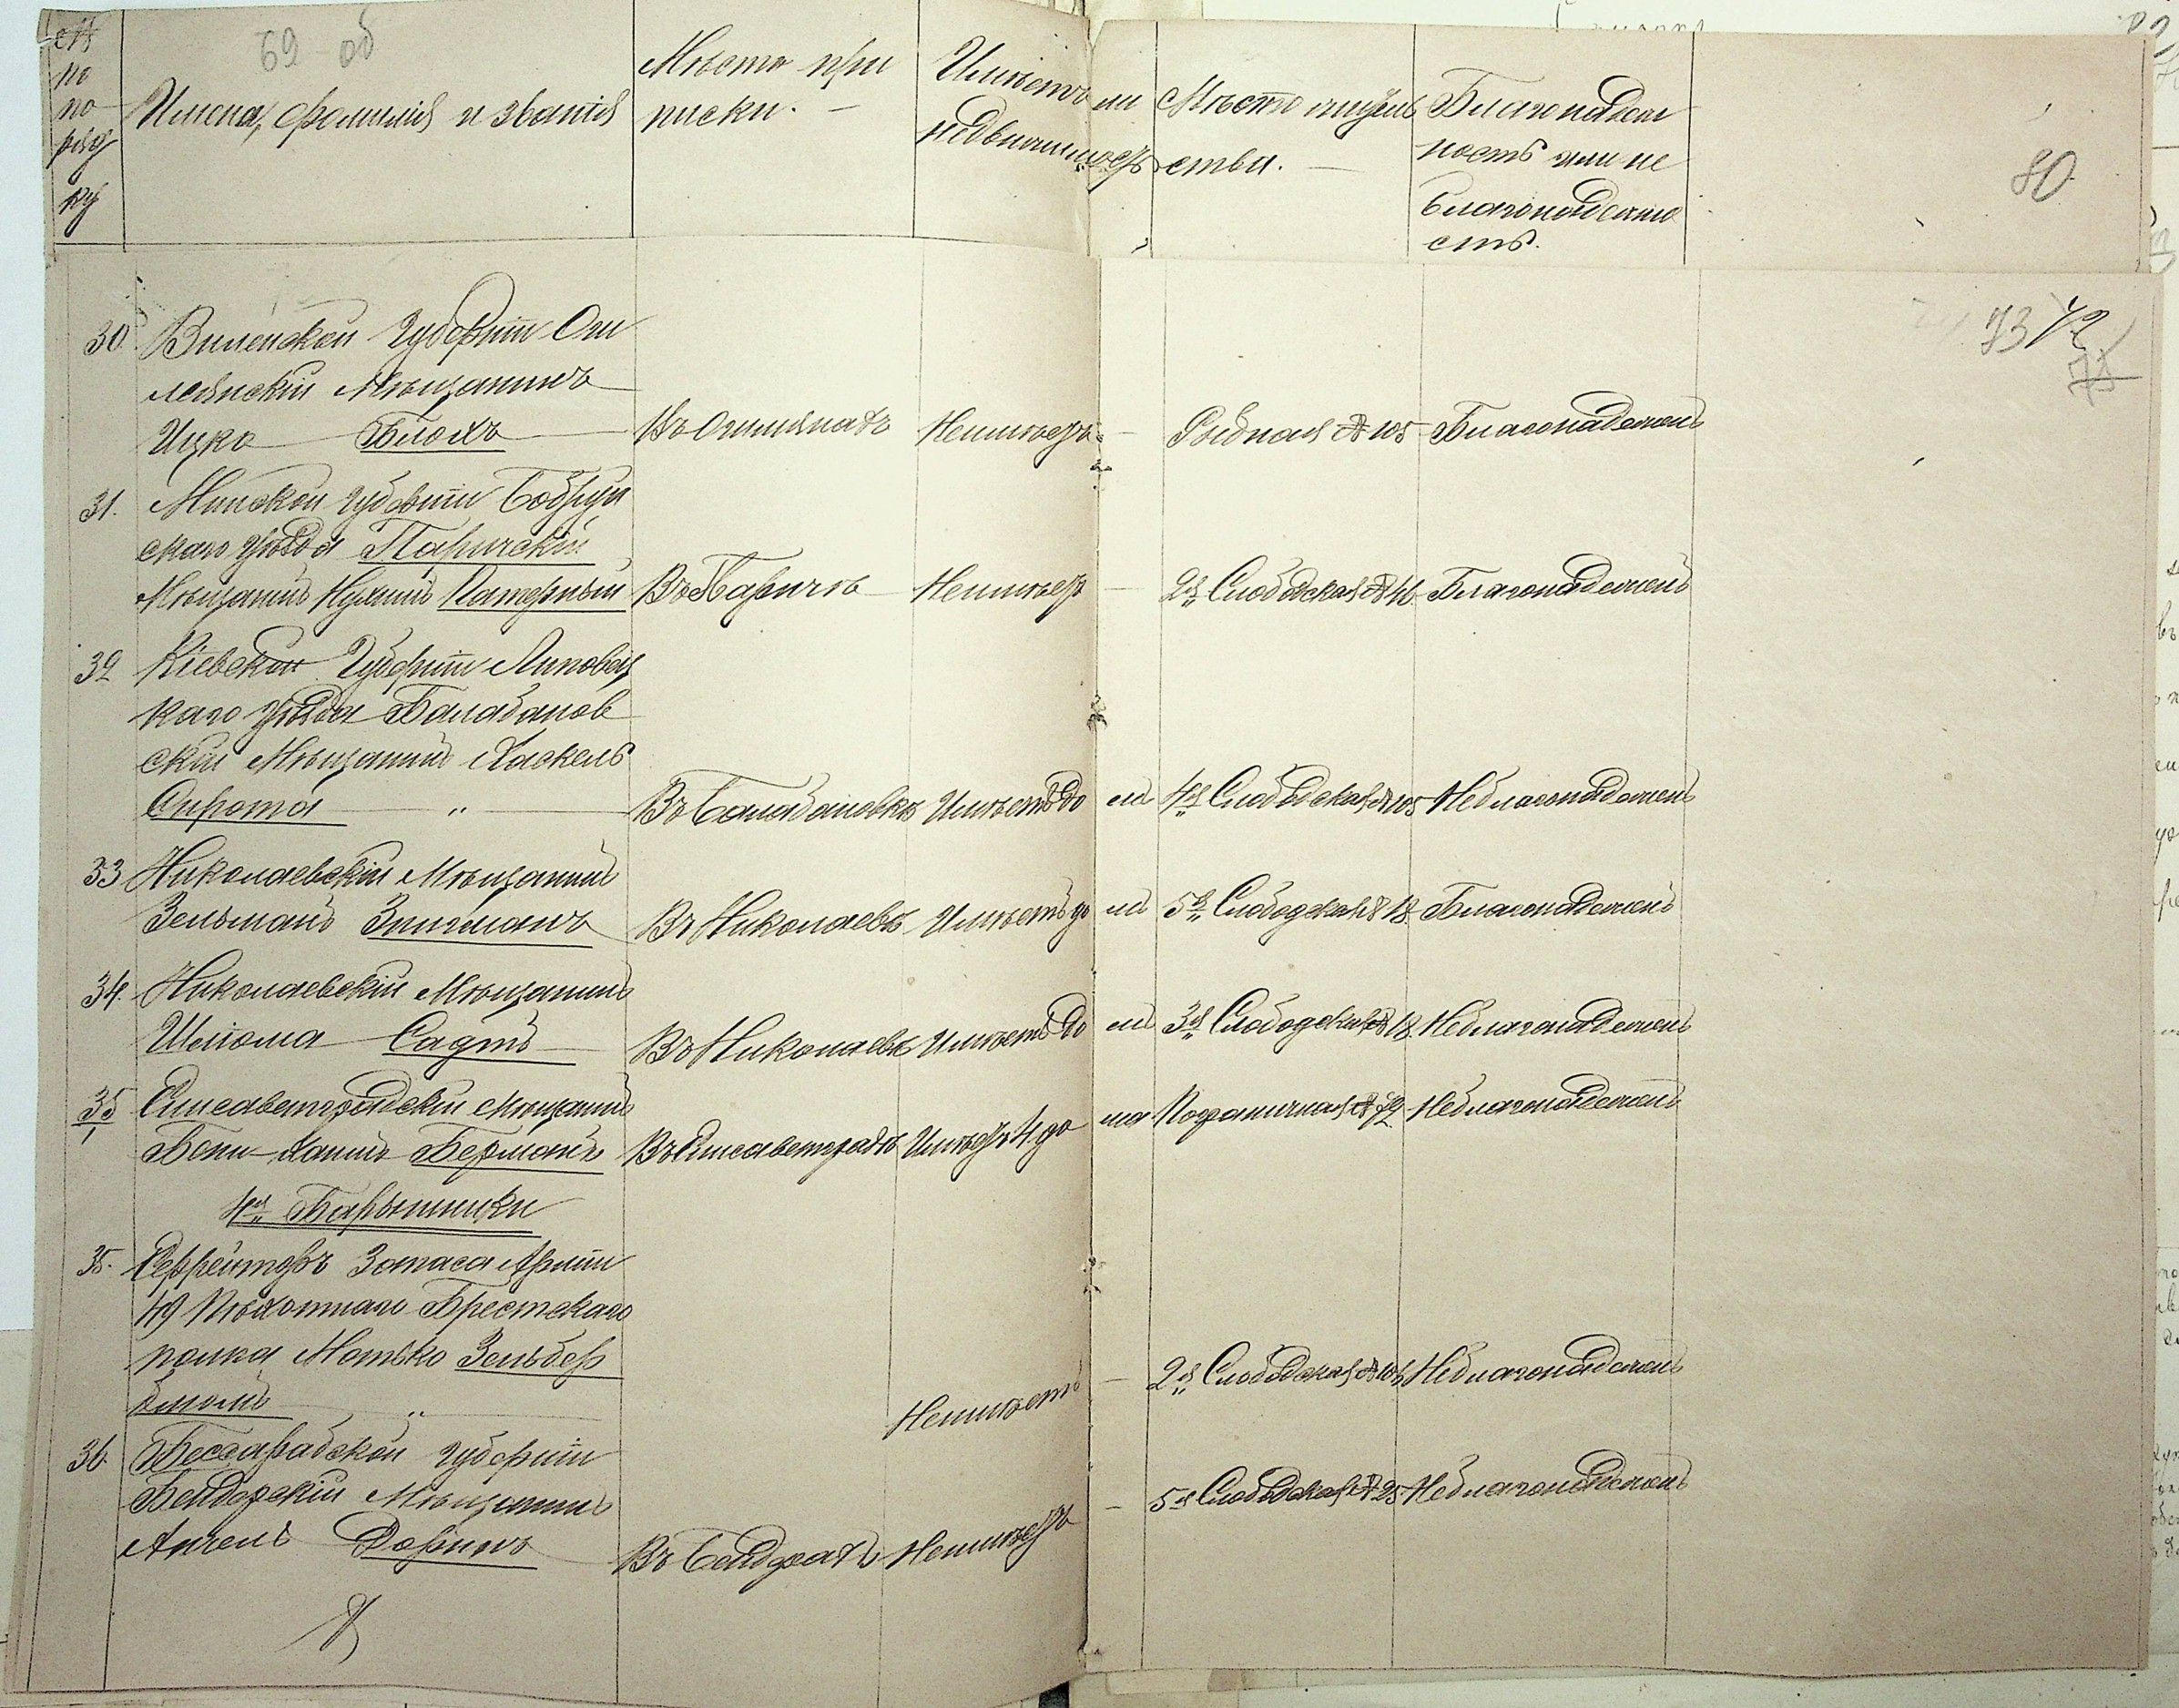 69 об
№ по порядку
Имена, фамилія и званія
Мѣсто при
писки.
Имѣетъ ли
недвижимость
Мѣсто житель
ства.
Благонадеж
ность или не
благонадежно
сть.
80
73 72
30. Виленской Губерніи Ош
мянскій Мѣщанинъ
Ицко Блохъ Въ Ошмянахъ Неимѣетъ — Рыбная № 105 Благонадеженъ
31. Минской Губерніи Бобруй
скаго уѣзда Паричскій
Мѣщанинъ Нухимъ Патерный Въ Паричѣ Неимѣетъ — 2я Слободская № 46 Благонадеженъ
32 Кіевской Губерніи Липовец
каго уѣзда Балабанов
скій Мѣщанинъ Хаскель
Сирота „ Въ Балабановкѣ Имѣетъ до мъ 4я Слободская № 105 Неблагонадеженъ
33 Николаевскій Мѣщанинъ
Зельманъ Зингманъ Въ Николаевѣ Имѣетъ до мъ 5я Слободская № 18. Благонадеженъ
34. Николаевскій Мѣщанинъ
Шліома Садтъ Въ Николаевѣ Имѣетъ до мъ 3я Слободская № 18. Неблагонадеженъ
35/1 Елисаветградскій мѣщанинъ
Бенц Хаимъ Берманъ Въ Елисаветградѣ Имѣетъ 4. до ма Пограничная № 72 Неблагонадеженъ
4я Барышники
35. Ефрейторъ Запаса Арміи
49 Пѣхотнаго Брестскаго
полка Мотько Зельбер
блюмъ „ Неимѣетъ — 2я Слободская № 106 Неблагонадеженъ
36. Бессарабской губерніи
Бендерскій Мѣщанинъ
Анчель Доринъ Въ Бендерахъ Неимѣетъ — 5я Слободская № 25. Неблагонадеженъ